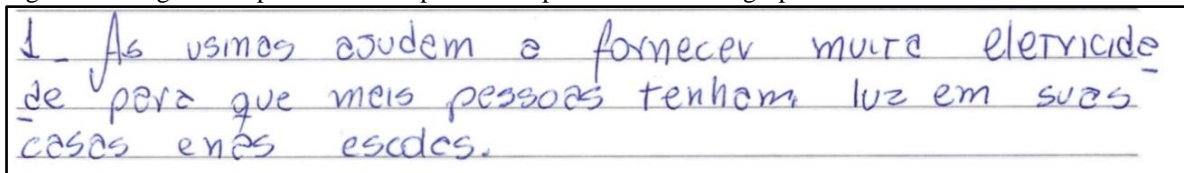 1_ As usinas ajudam a fornecer muita eletricida
de para que mais pessoas tenham luz em suas
casas e nas escolas.